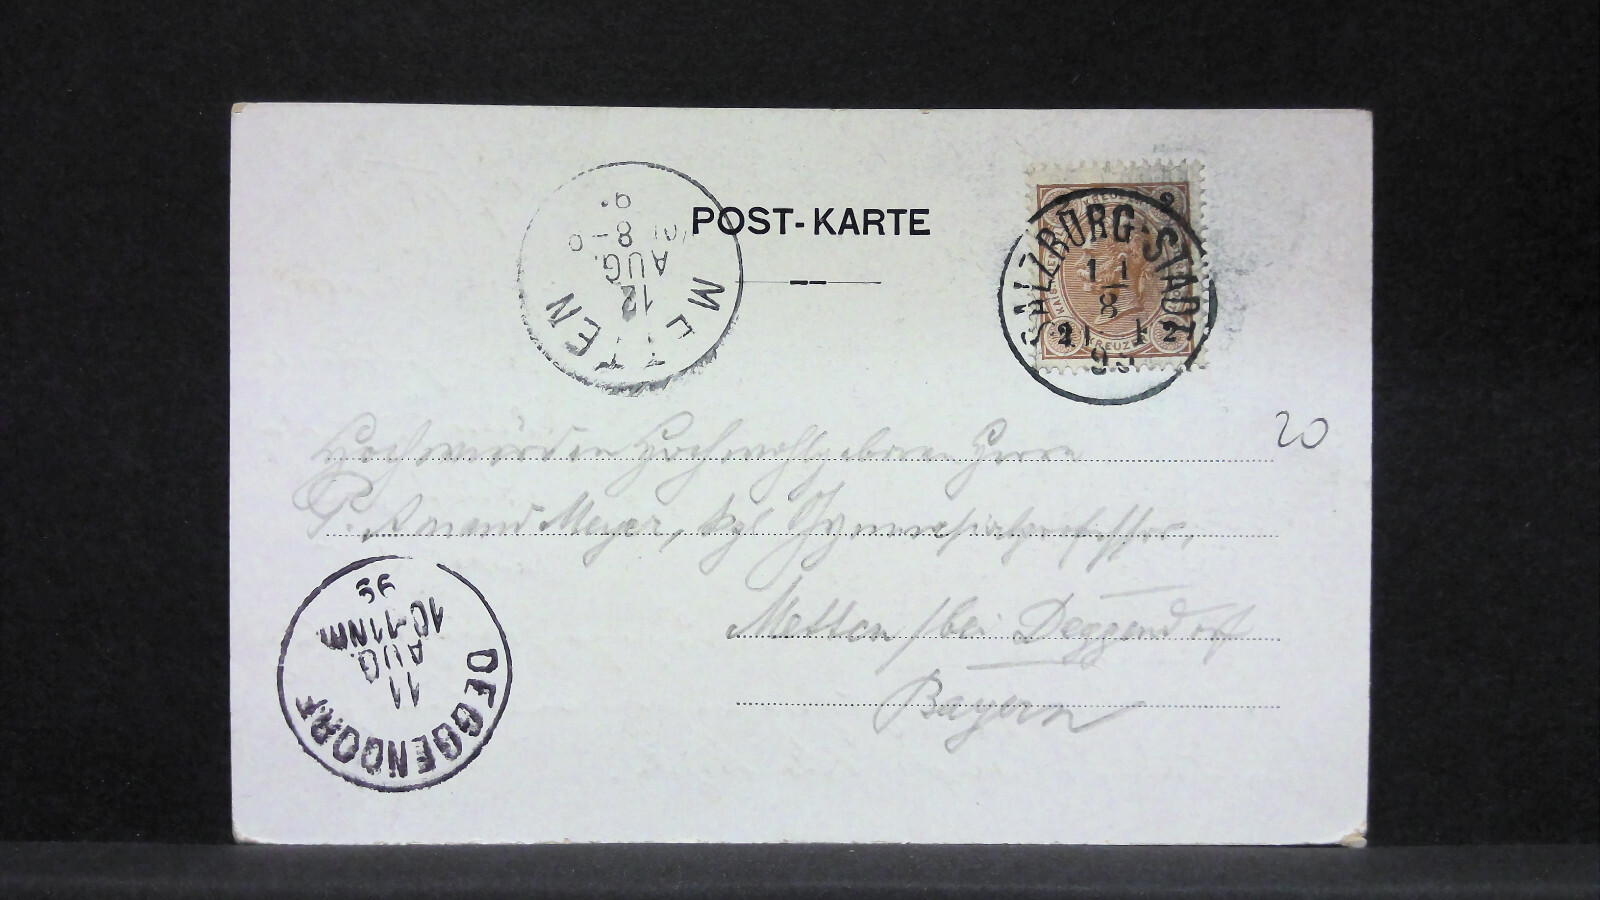 POST-KARTE
METTEN
12
AUG.
8-9
SALZBURG-STADT
11
8
95
2 KREUZER 2
20
Hochwürden Hochwohlgeboren Herrn
P. Amand Meyer, kgl Gymnasialprofessor,
Metten /bei Deggendorf
Bayern
DEGGENDORF
11
AUG.
10-11NM.
95